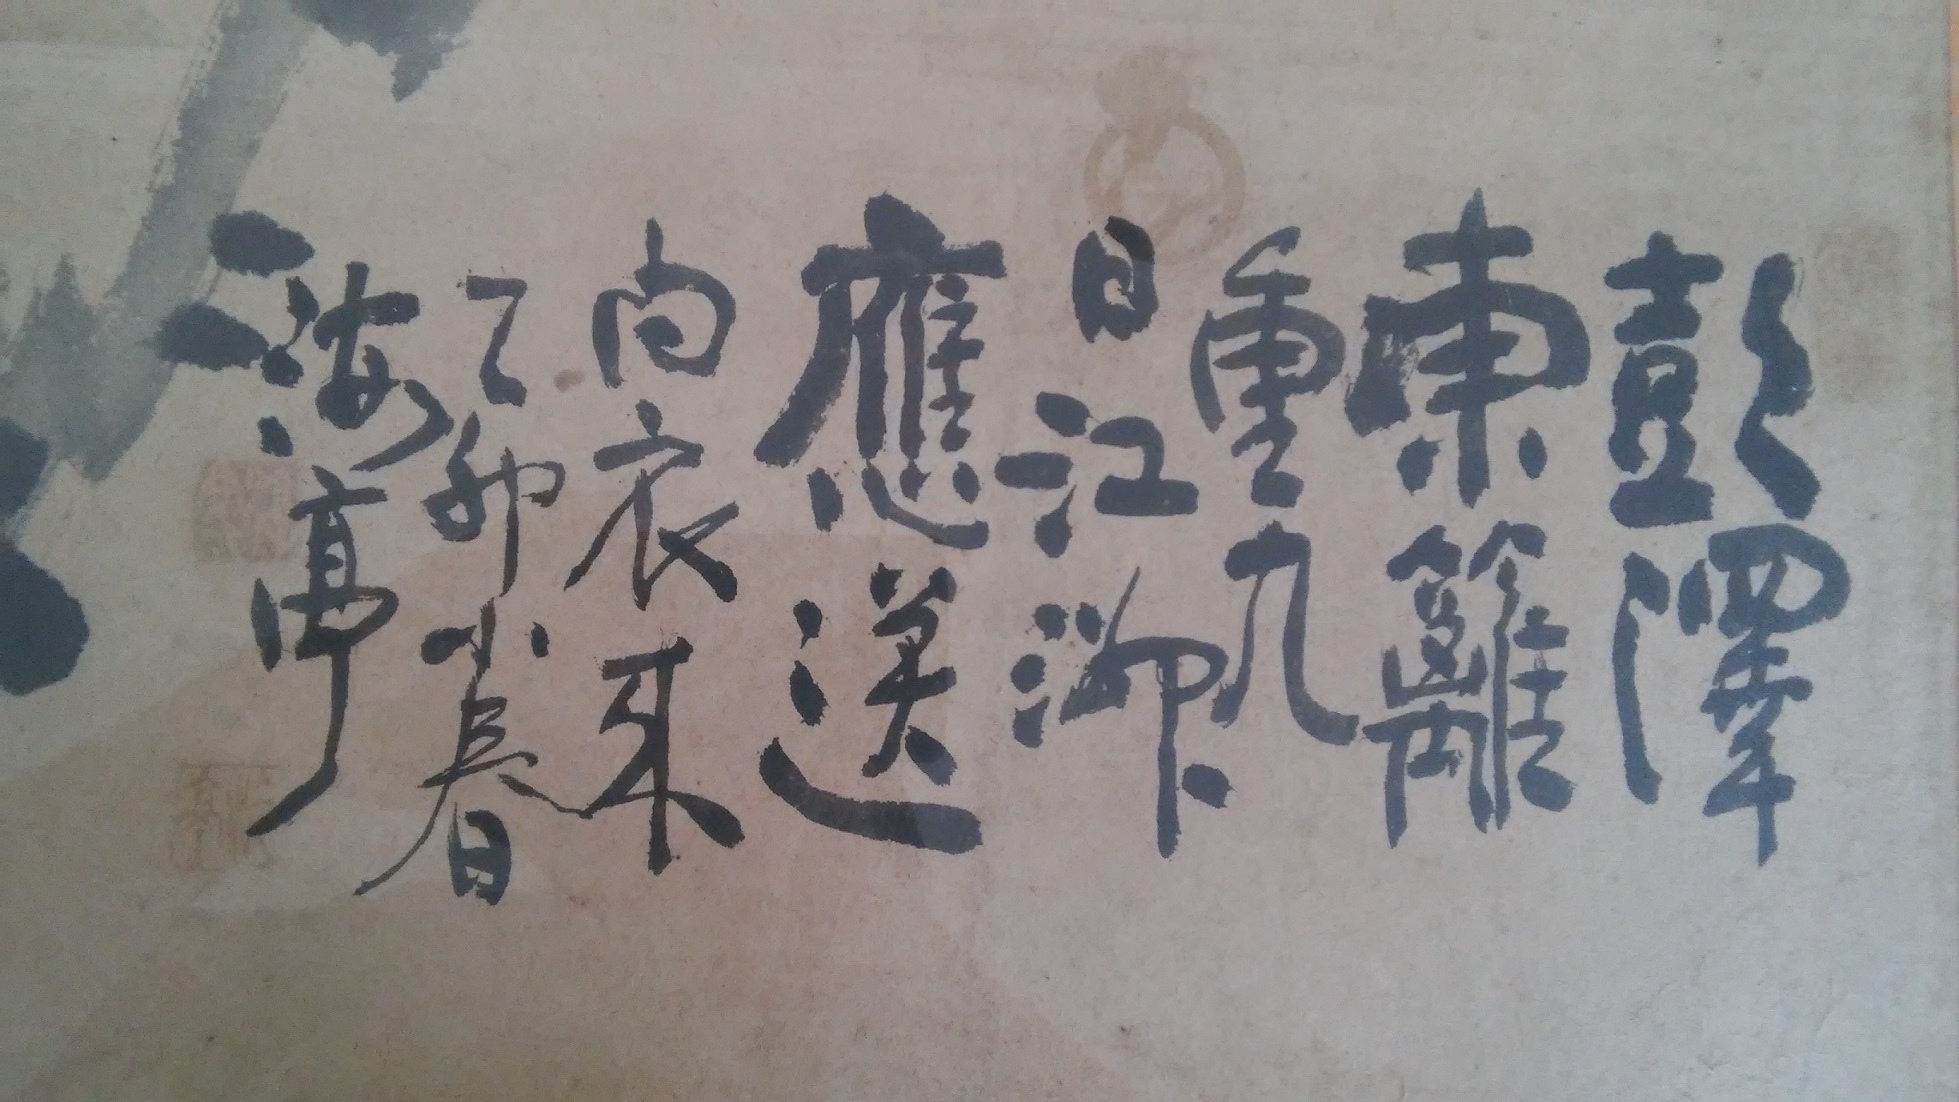 彭澤
東籬
重九
日江洲
應送
白衣來
乙卯小春日
海亭